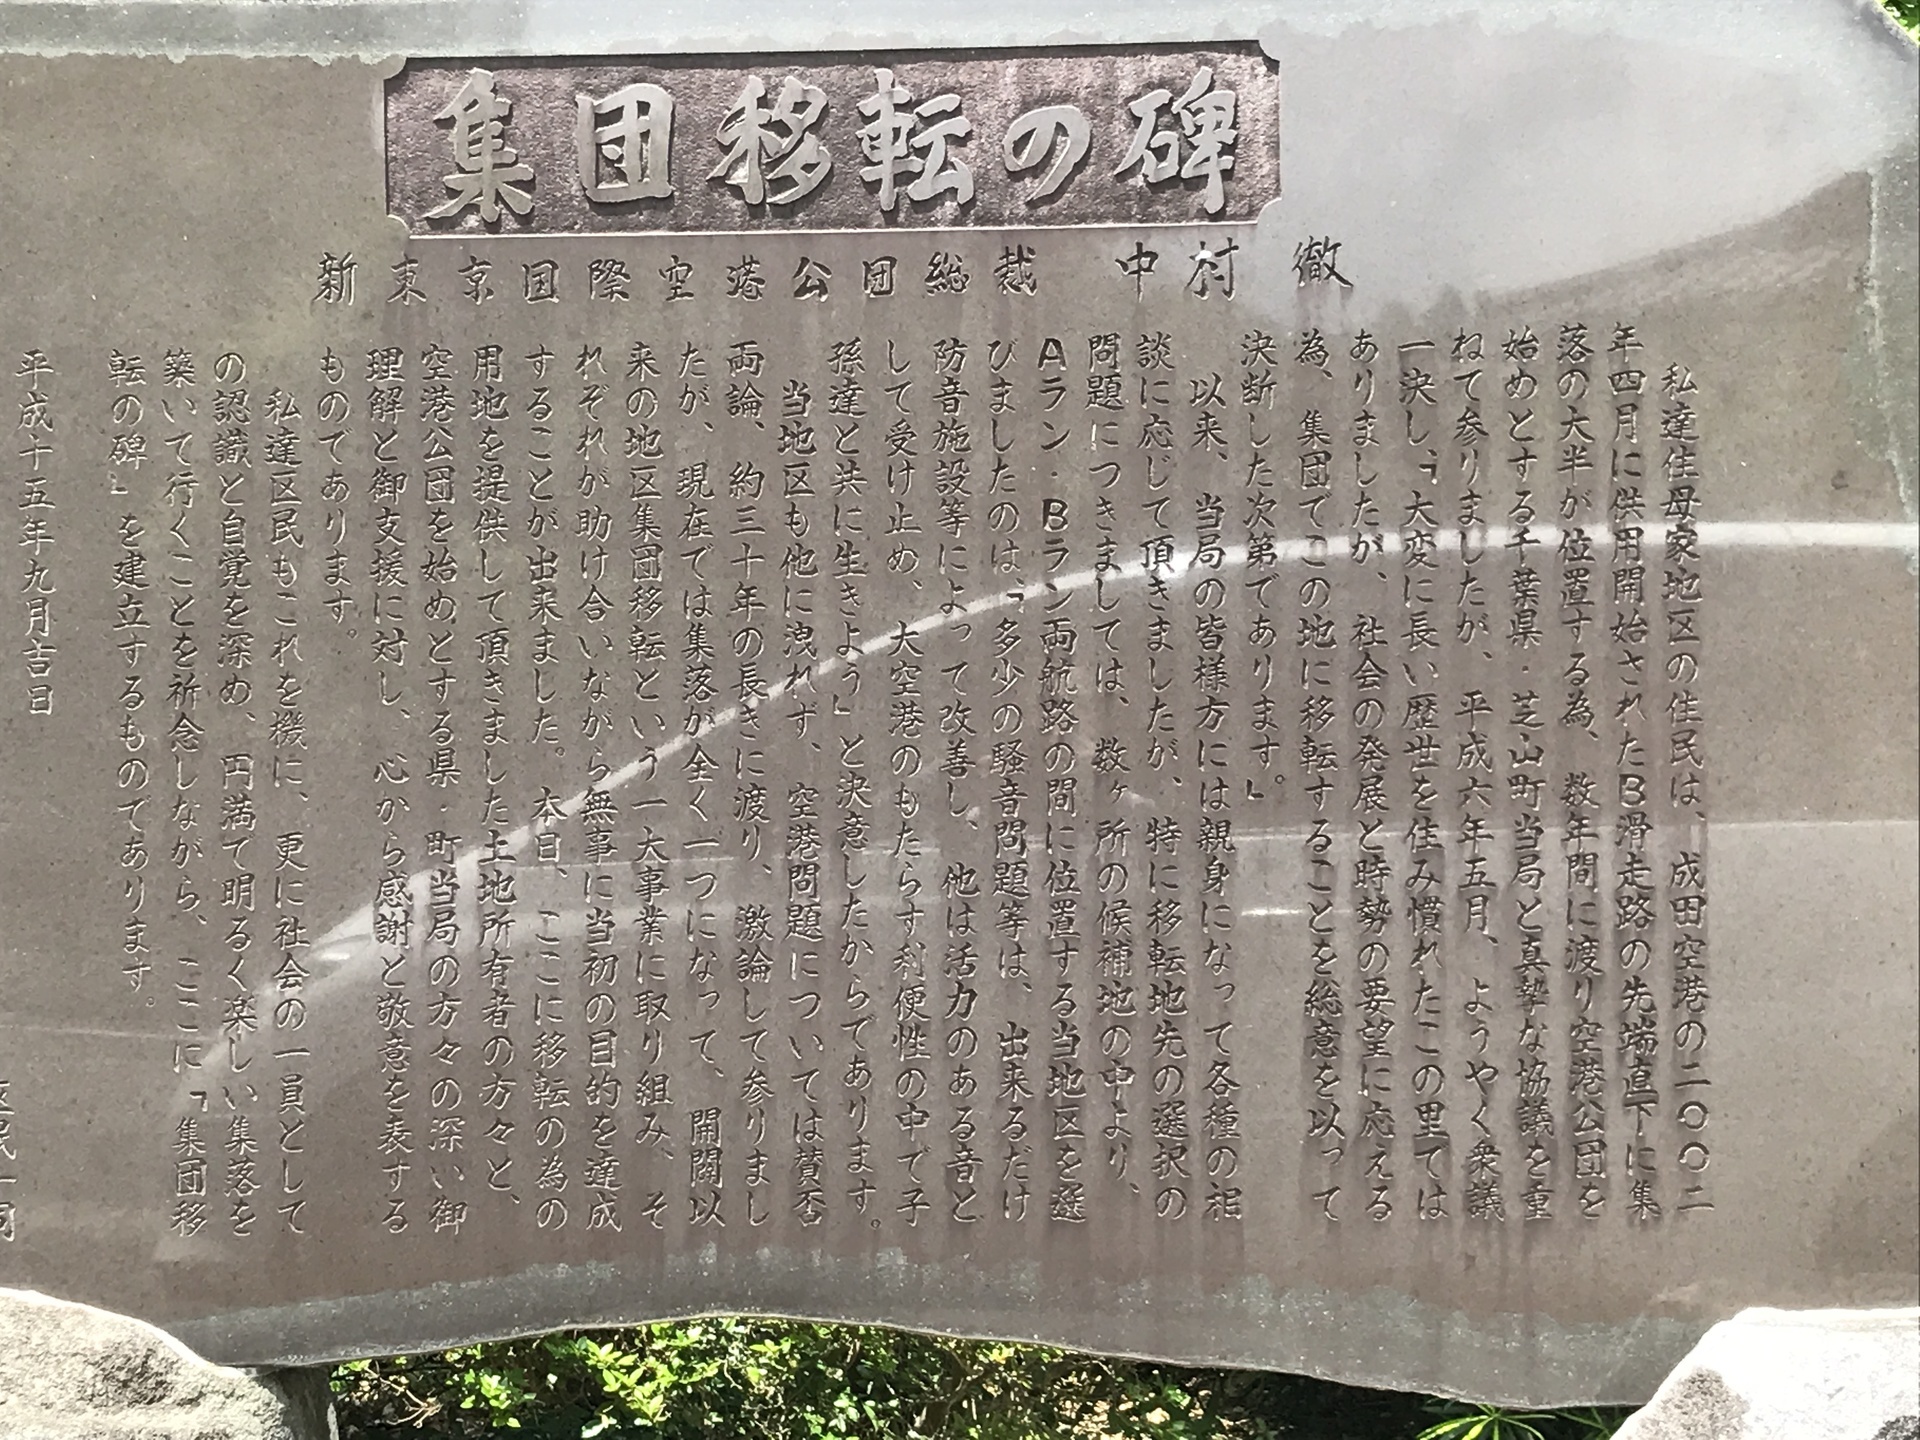 集団移転の碑
新東京国際空港公団総裁 中村 徹
私達住母家地区の住民は、成田空港の二〇〇二
年四月に供用開始されたB滑走路の先端直下に集
落の大半が位置する為、数年間に渡り空港公団を
始めとする千葉県・芝山町当局と真摯な協議を重
ねて参りましたが、平成六年五月、ようやく衆議
一決し、「大変に長い歴世を住み慣れたこの里では
ありましたが、社会の発展と時勢の要望に応える
為、集団でこの地に移転することを総意を以って
決断した次第であります。」
以来、当局の皆様方には親身になって各種の相
談に応じて頂きましたが、特に移転地先の選択の
問題につきましては、数ヶ所の候補地の中より、
Aラン・Bラン両航路の間に位置する当地区を選
びましたのは、「多少の騒音問題等は、出来るだけ
防音施設等によって改善し、他は活力のある音と
して受け止め、大空港のもたらす利便性の中で子
孫達と共に生きよう」と決意したからであります。
当地区も他に洩れず、空港問題については賛否
両論、約三十年の長きに渡り、激論して参りまし
たが、現在では集落が全く一つになって、開闢以
来の地区集団移転という一大事業に取り組み、そ
れぞれが助け合いながら無事に当初の目的を達成
することが出来ました。本日、ここに移転の為の
用地を提供して頂きました土地所有者の方々と、
空港公団を始めとする県・町当局の方々の深い御
理解と御支援に対し、心から感謝と敬意を表する
ものであります。
私達区民もこれを機に、更に社会の一員として
の認識と自覚を深め、円満で明るく楽しい集落を
築いて行くことを祈念しながら、ここに「集団移
転の碑」を建立するものであります。
平成十五年九月吉日
区民一同